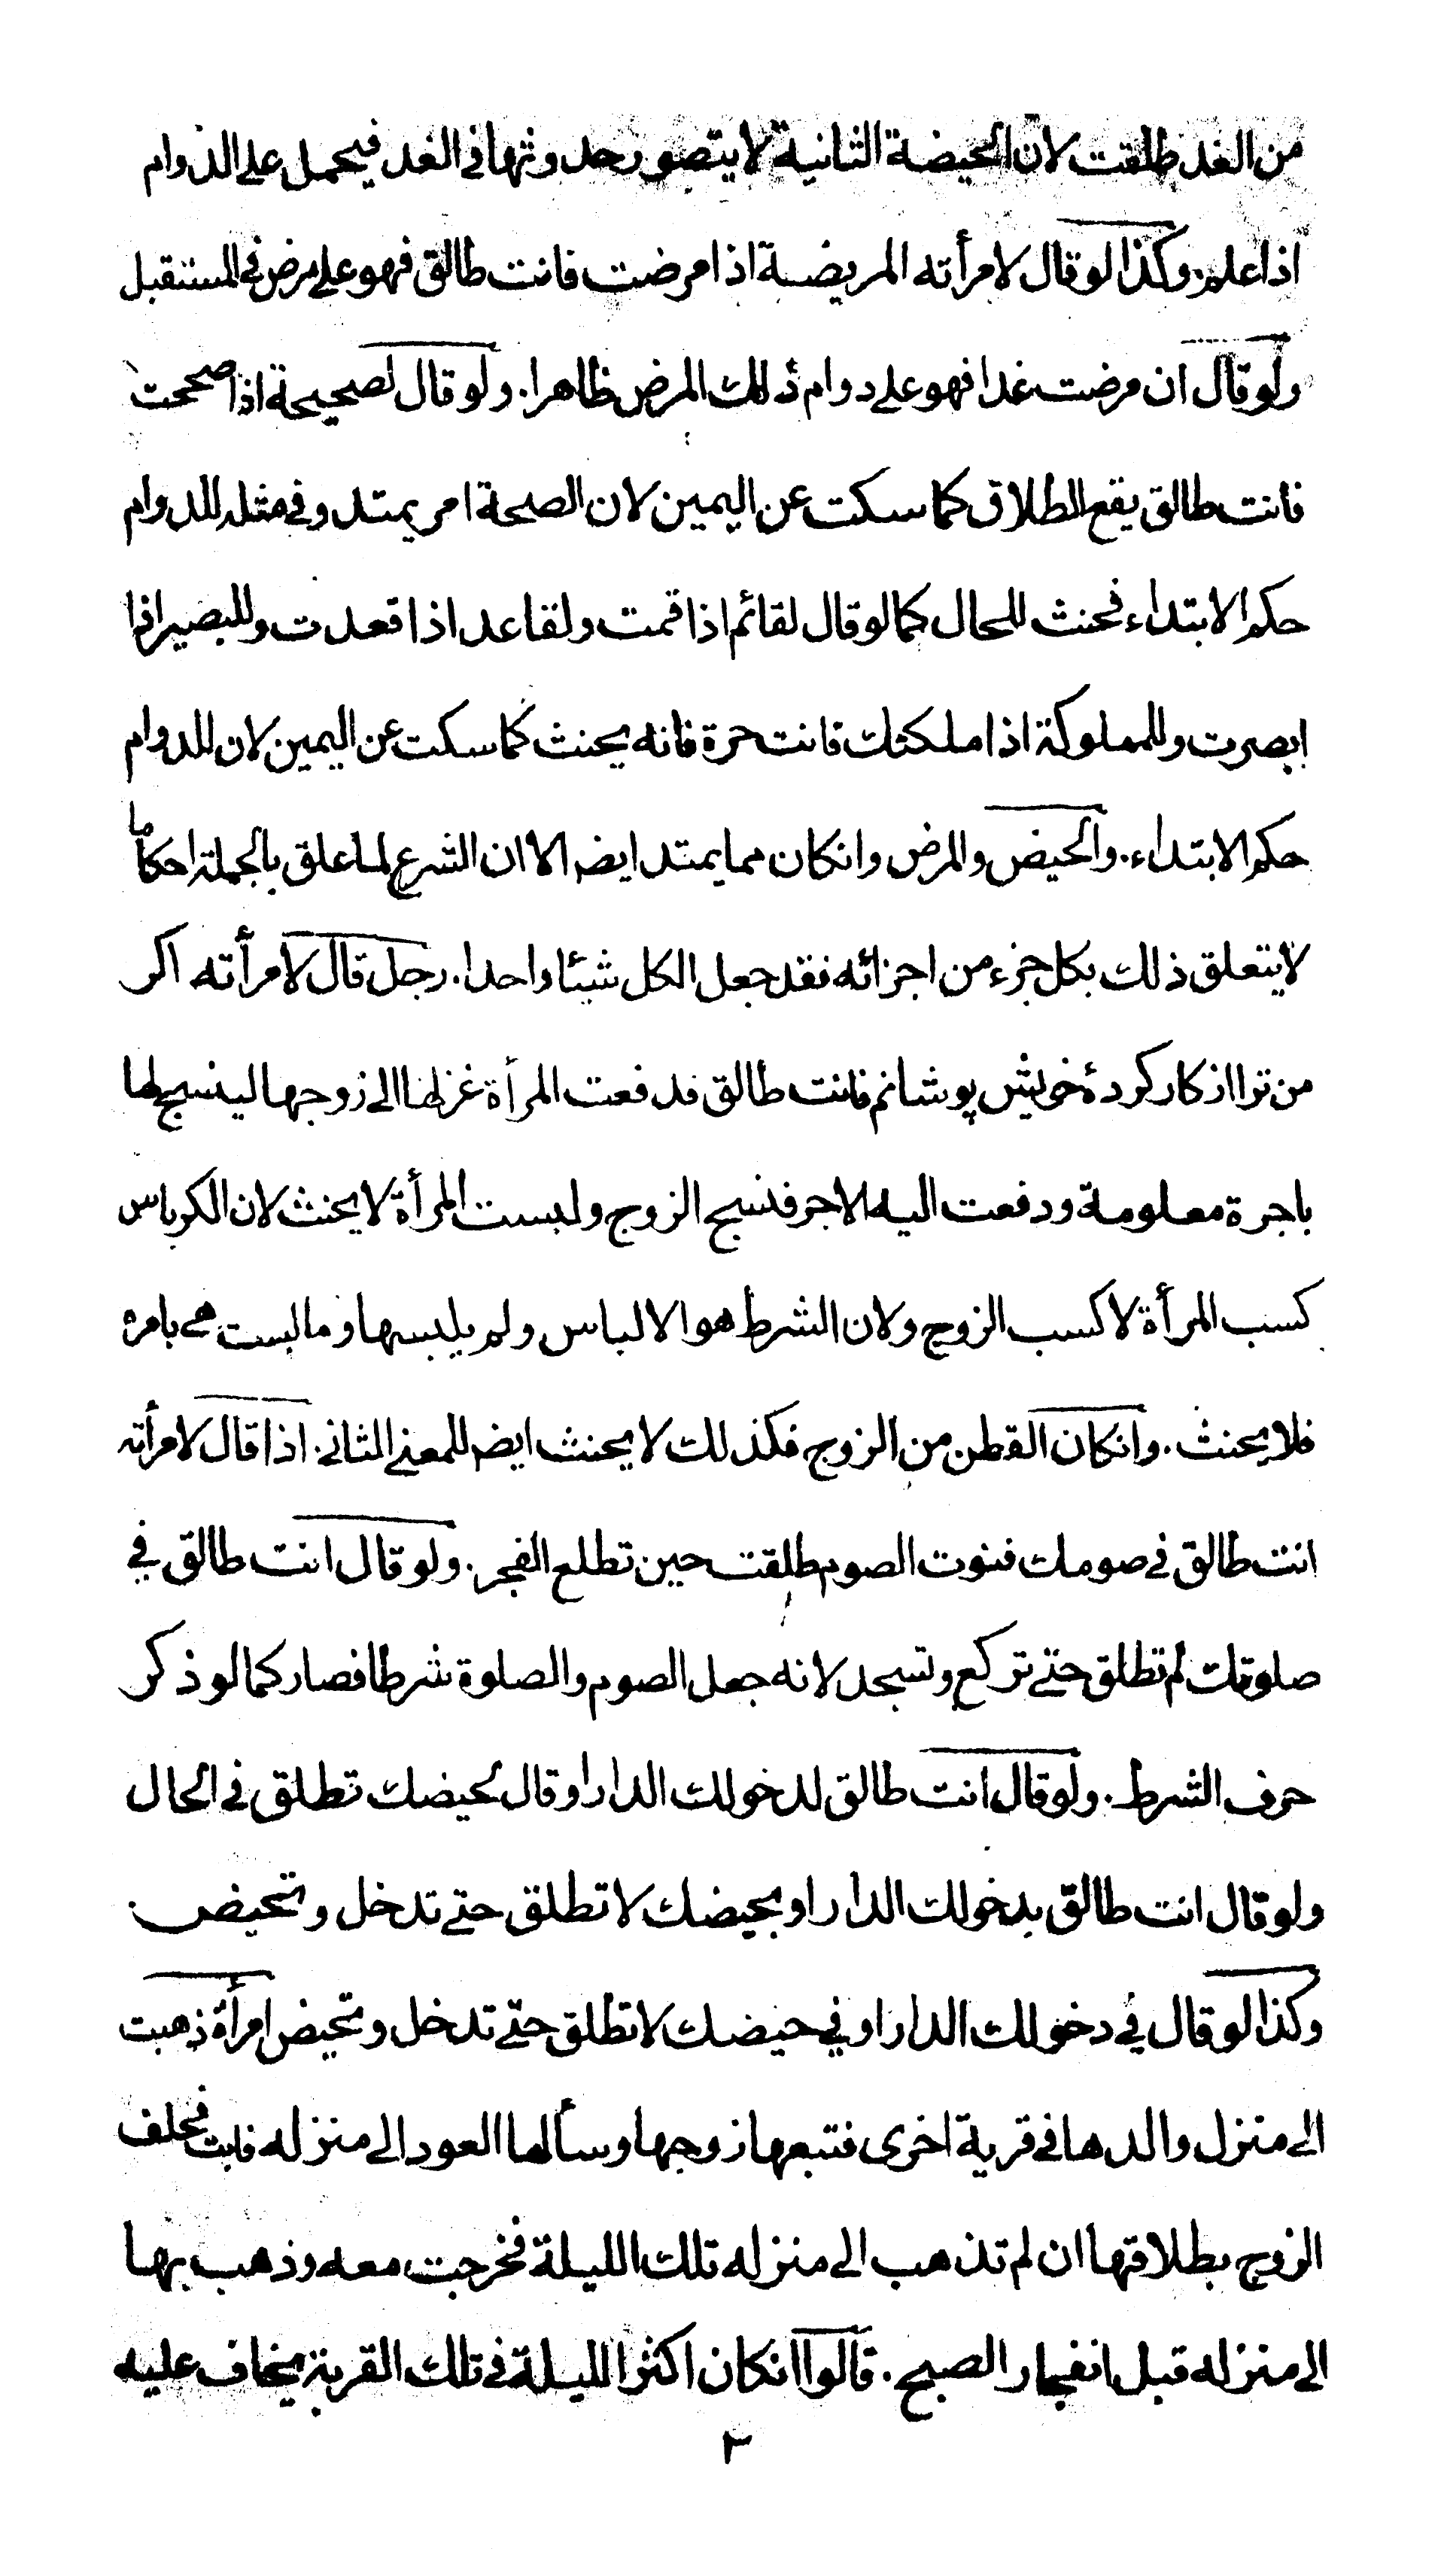 من الغد طلقت لان الحيضة الثانية لا يتصور حدوثها في الغد فيحمل على الدوام
اذا علم. وكذا لو قال لامرأته المريضة اذا مرضت فانت طالق فهو على مرض في المستقبل
ولو قال ان مرضت غدا فهو على دوام ذلك المرض ظاهرا. ولو قال لصحيحة اذا صححت
فانت طالق يقع الطلاق كما سكت عن اليمين لان الصحة امر يمتد وفي مثله للدوام
حكم الابتداء فحنث للحال كما لو قال لقائم اذا قمت ولقاعد اذا قعدت وللبصير اذا
ابصرت وللمملوكة اذا ملكتك فانت حرة فانه يحنث كما سكت عن اليمين لان للدوام
حكم الابتداء. والحيض والمرض وانكان مما يمتد ايضه الا ان الشرع لما علق بالجملة احكاما
لا يتعلق ذلك بكل جزء من اجزائه فقد جعل الكل شيئا واحدا. رجل قال لامرأته اكر
من ترا از كار كردهٔ خويش پوشانم فانت طالق فدفعت المرأة غزلها الى زوجها لينسج لها
باجرة معلومة ودفعت اليه الاجر فنسج الزوج ولبست المرأة لا يحنث لان الكرباس
كسب المرأة لا كسب الزوج ولان الشرط هو الالباس ولم يلبسها وما لبست هي بامره
فلا يحنث. وانكان القطن من الزوج فكذلك لا يحنث ايضه للمعنى الثاني. اذا قال لامرأته
انت طالق في صومك فنوت الصوم طلقت حين تطلع الفجر. ولو قال انت طالق في
صلوتك لم تطلق حتى تركع وتسجد لانه جعل الصوم والصلوة شرطا فصار كما لو ذكر
حرف الشرط. ولو قال انت طالق لدخولك الدار او قال لحيضك تطلق في الحال
ولو قال انت طالق بدخولك الدار او بحيضك لا تطلق حتى تدخل وتحيض.
وكذا لو قال في دخولك الدار او في حيضك لا تطلق حتى تدخل وتحيض امرأة ذهبت
الى منزل والدها في قرية اخرى فتبعها زوجها وسألها العود الى منزله فابت فحلف
الزوج بطلاقها ان لم تذهب الى منزله تلك الليلة فخرجت معه وذهب بها
الى منزله قبل انفجار الصبح. قالوا انكان اكثر الليلة في تلك القرية يخاف عليه
٣